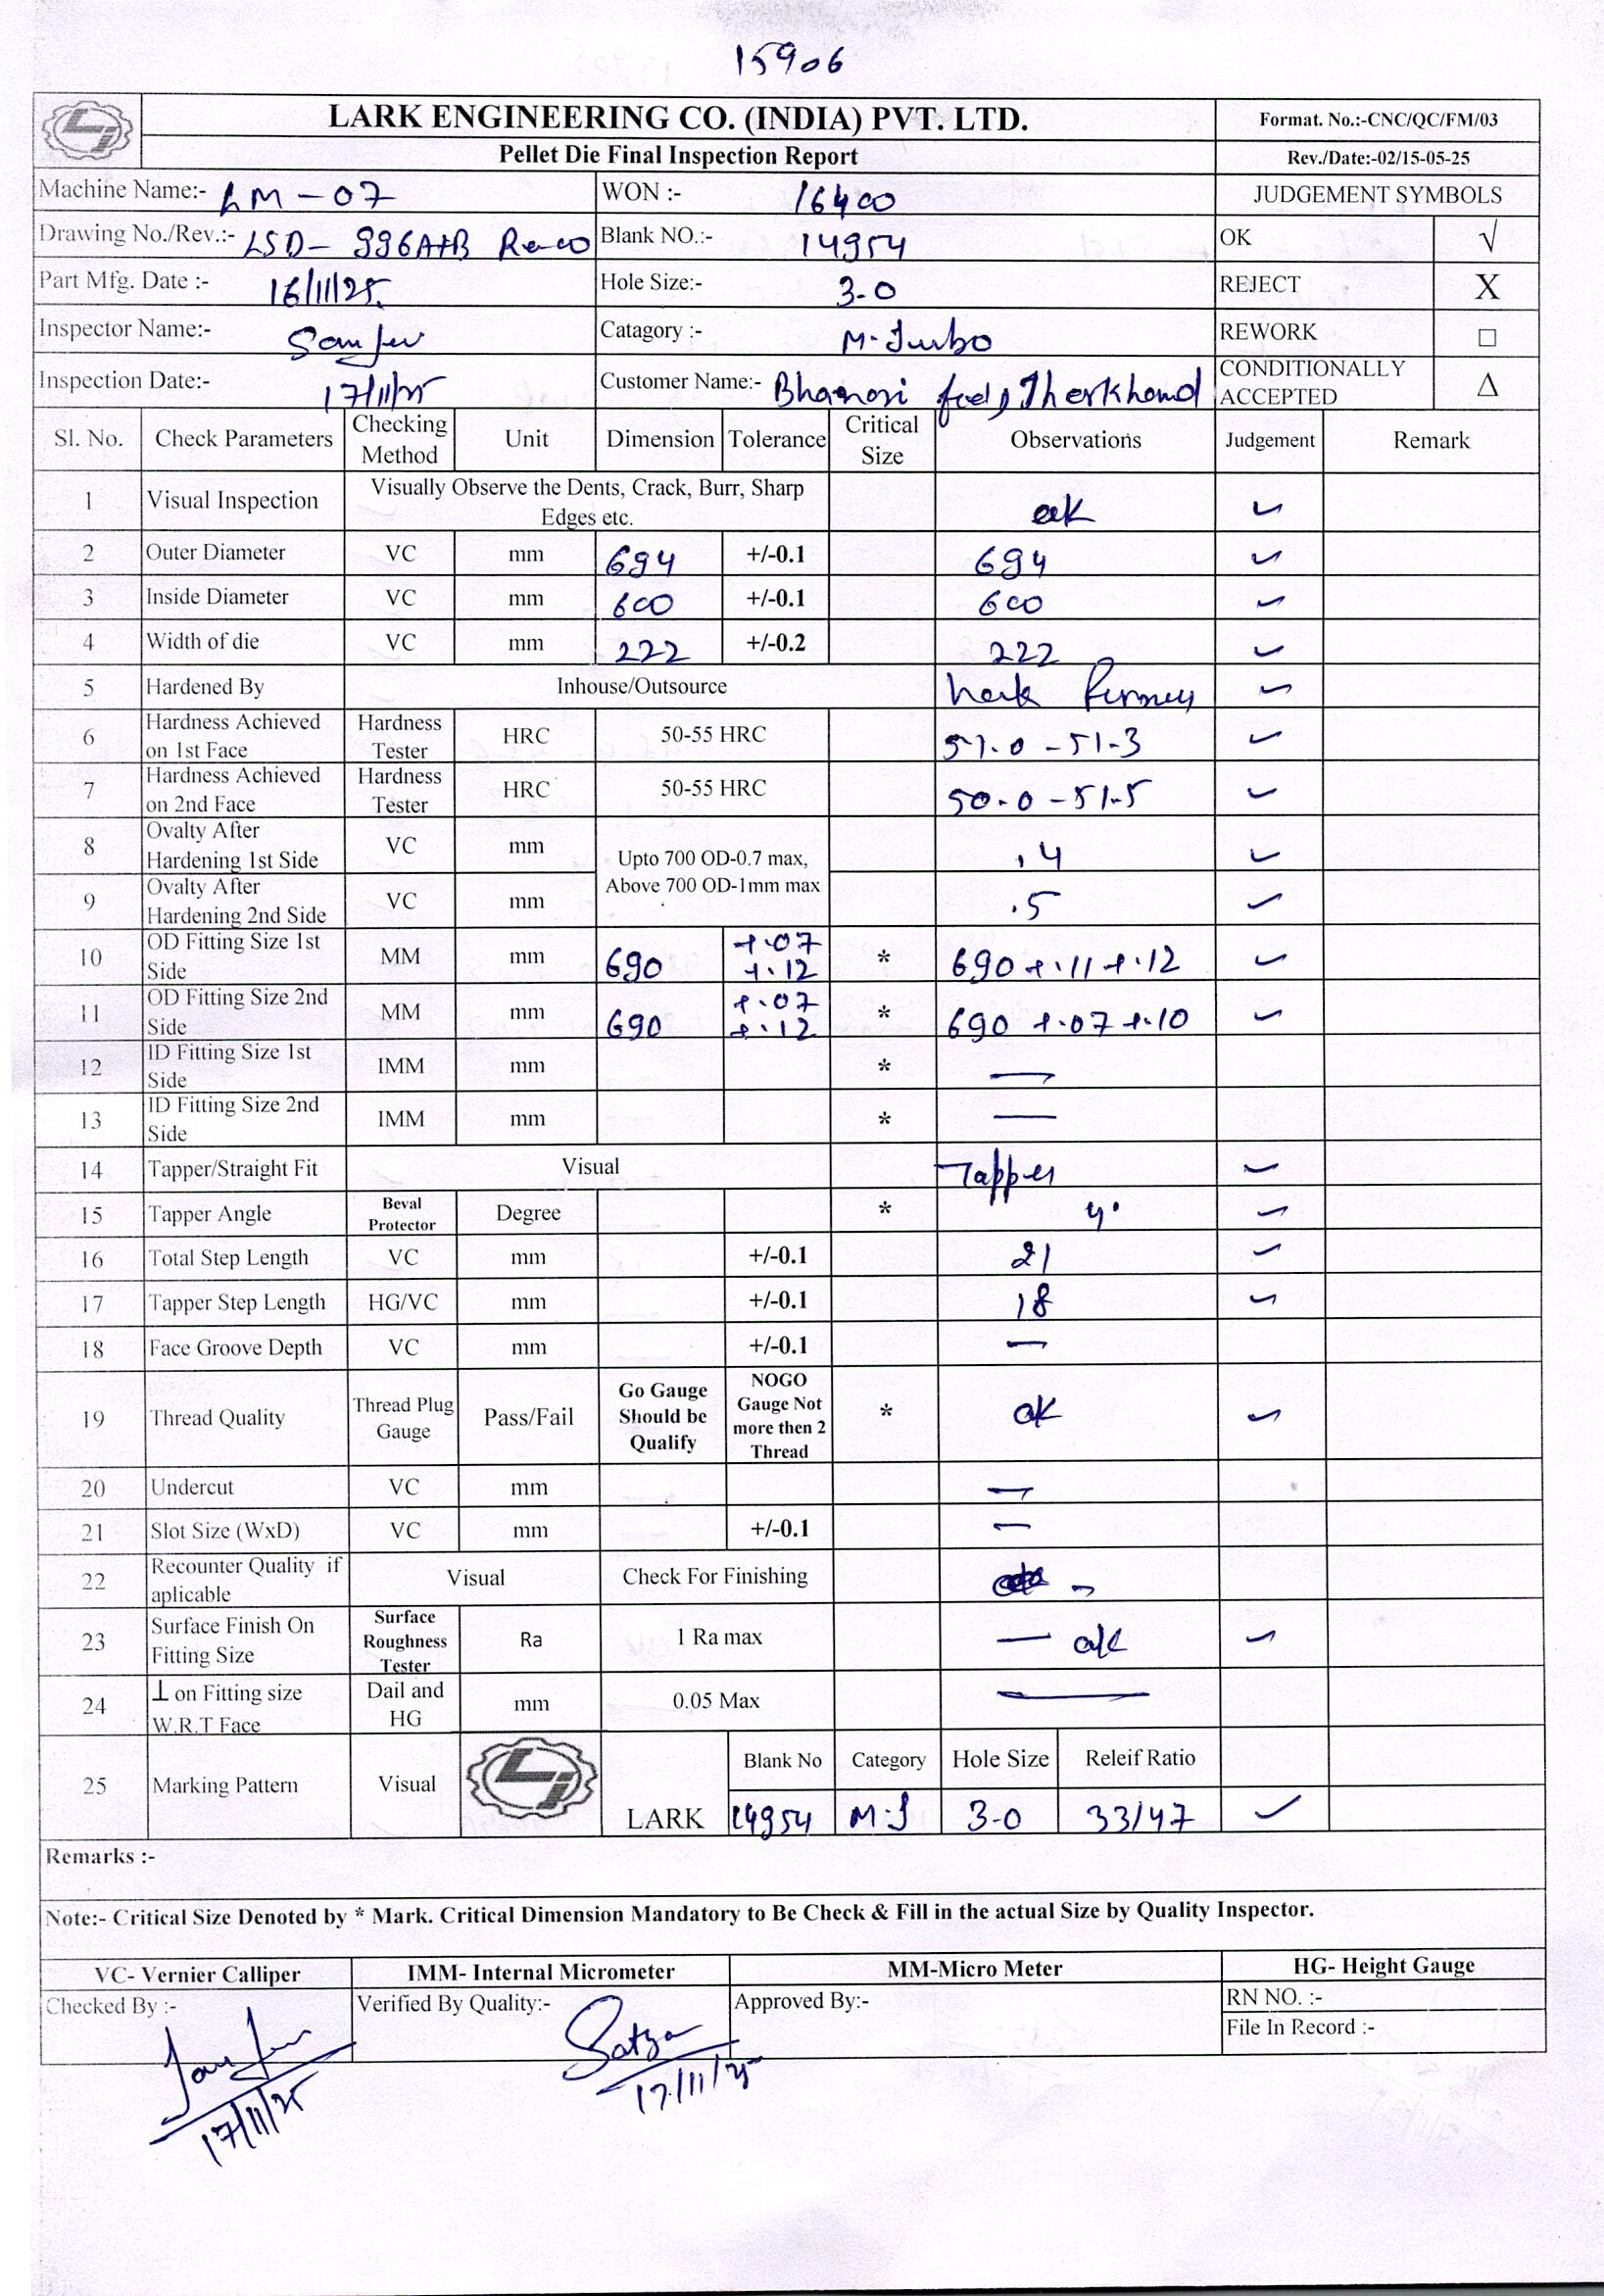 15906
LARK ENGINEERING CO. (INDIA) PVT. LTD.
Format. No.:-CNC/QC/FM/03
Pellet Die Final Inspection Report
Rev./Date:-02/15-05-25
Machine Name:- LM-07 WON :- 16400 JUDGEMENT SYMBOLS
Drawing No./Rev.:- LSD- 996A+B Re-00 Blank NO.:- 14954 OK √
Part Mfg. Date :- 16/11/25 Hole Size:- 3-0 REJECT X
Inspector Name:- Catagory :- M-Turbo REWORK □
Inspection Date:- 17/11/25 Customer Name:- feed, Jherkhand CONDITIONALLY ACCEPTED Δ
Sl. No. Check Parameters Checking Method Unit Dimension Tolerance Critical Size Observations Judgement Remark
1 Visual Inspection Visually Observe the Dents, Crack, Burr, Sharp Edges etc. ok ✓
2 Outer Diameter VC mm 694 +/-0.1 694 ✓
3 Inside Diameter VC mm 600 +/-0.1 600 ✓
4 Width of die VC mm 222 +/-0.2 222 ✓
5 Hardened By Inhouse/Outsource ✓
6 Hardness Achieved on 1st Face Hardness Tester HRC 50-55 HRC 51.0 - 51-3 ✓
7 Hardness Achieved on 2nd Face Hardness Tester HRC 50-55 HRC 50-0 - 51-5 ✓
8 Ovalty After Hardening 1st Side VC mm Upto 700 OD-0.7 max, Above 700 OD-1mm max .4 ✓
9 Ovalty After Hardening 2nd Side VC mm .5 ✓
10 OD Fitting Size 1st Side MM mm 690 +.07 +.12 * 690 +.11 +.12 ✓
11 OD Fitting Size 2nd Side MM mm 690 +.07 +.12 * 690 +.07 +.10 ✓
12 ID Fitting Size 1st Side IMM mm * —
13 ID Fitting Size 2nd Side IMM mm * —
14 Tapper/Straight Fit Visual Tapper ✓
15 Tapper Angle Beval Protector Degree * 4° ✓
16 Total Step Length VC mm +/-0.1 21 ✓
17 Tapper Step Length HG/VC mm +/-0.1 18 ✓
18 Face Groove Depth VC mm +/-0.1 —
19 Thread Quality Thread Plug Gauge Pass/Fail Go Gauge Should be Qualify NOGO Gauge Not more then 2 Thread * ok ✓
20 Undercut VC mm —
21 Slot Size (WxD) VC mm +/-0.1 —
22 Recounter Quality if aplicable Visual Check For Finishing -
23 Surface Finish On Fitting Size Surface Roughness Tester Ra 1 Ra max — o/k ✓
24 ⊥ on Fitting size W.R.T Face Dail and HG mm 0.05 Max —
25 Marking Pattern Visual LARK Blank No Category Hole Size Releif Ratio
14954 M.J 3-0 33/47 ✓
Remarks :-
Note:- Critical Size Denoted by * Mark. Critical Dimension Mandatory to Be Check & Fill in the actual Size by Quality Inspector.
VC- Vernier Calliper IMM- Internal Micrometer MM-Micro Meter HG- Height Gauge
Checked By :- Verified By Quality:- Approved By:- RN NO. :-
File In Record :-
17/11/25 17/11/25